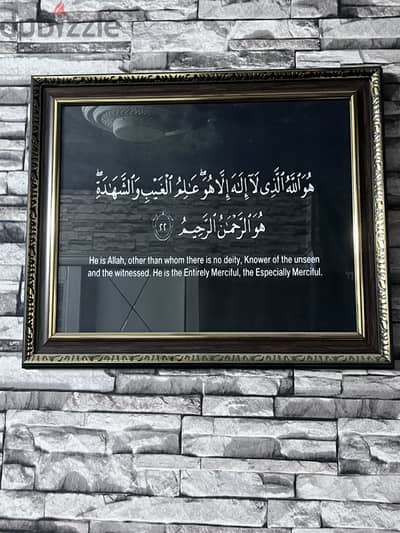 dubizzle
هُوَ ٱللَّهُ ٱلَّذِى لَآ إِلَـٰهَ إِلَّا هُوَ ۖ عَـٰلِمُ ٱلْغَيْبِ وَٱلشَّهَـٰدَةِ ۖ
هُوَ ٱلرَّحْمَـٰنُ ٱلرَّحِيمُ ٢٢
He is Allah, other than whom there is no deity, Knower of the unseen
and the witnessed. He is the Entirely Merciful, the Especially Merciful.